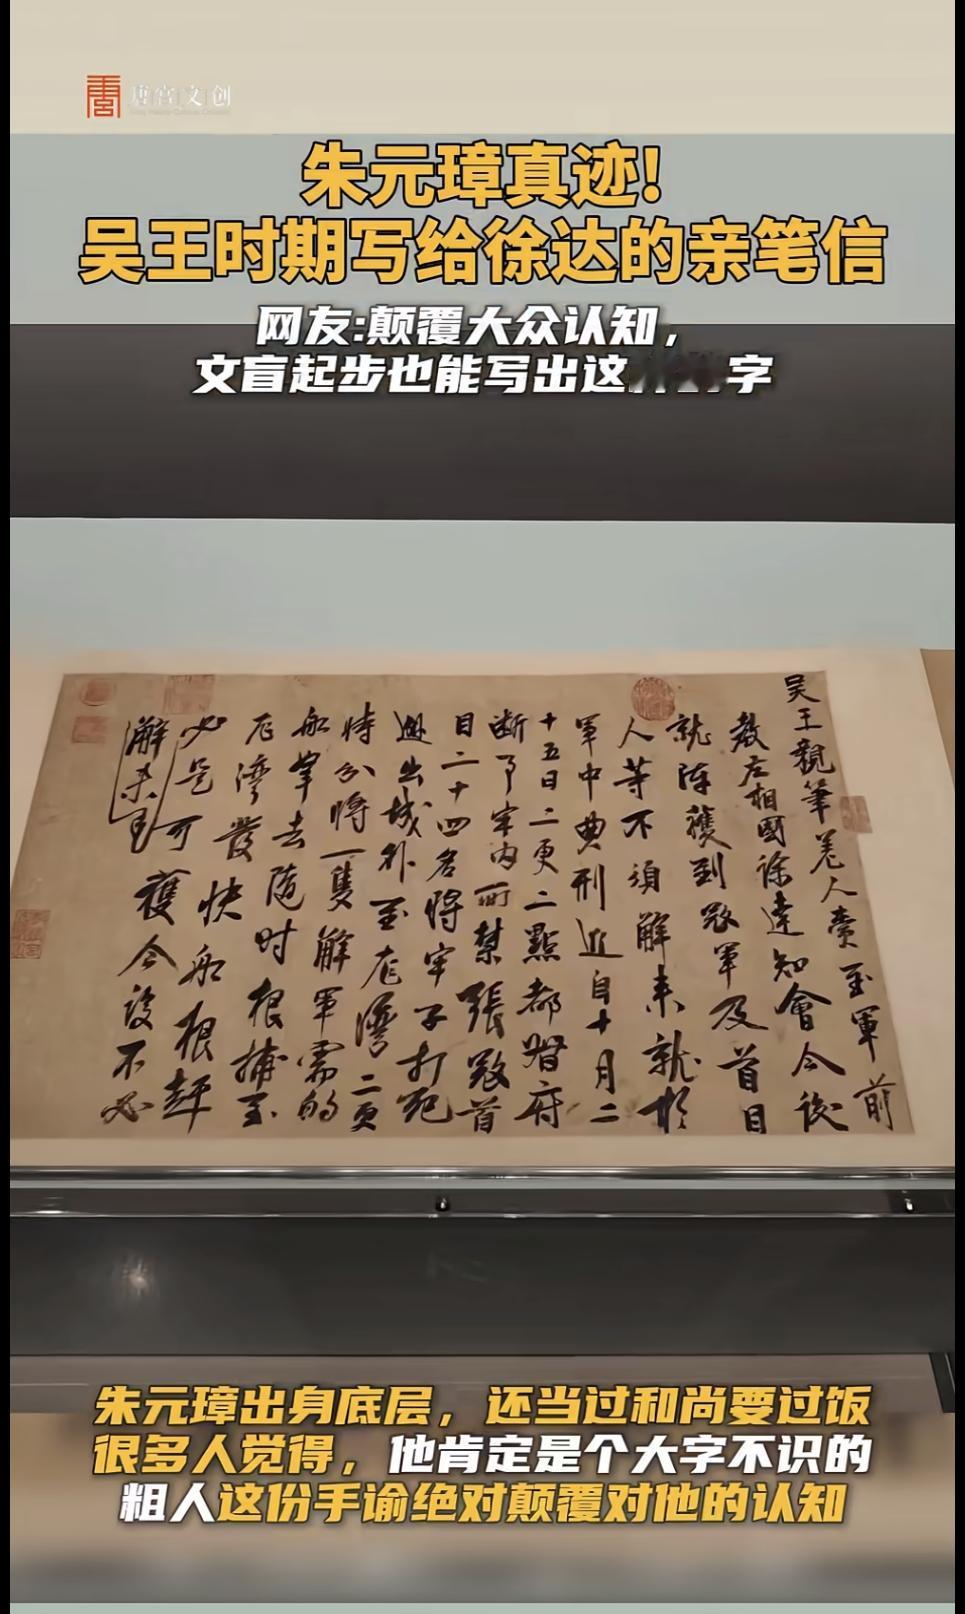 唐宫文创
朱元璋真迹!
吴王时期写给徐达的亲笔信
网友:颠覆大众认知,
文盲起步也能写出这字
吴王親筆差人賫至軍前
教左相國徐達知會今後
就陣獲到寇軍及首目
人等不須解来就於
軍中典刑近自十月二
十五日二更二點都督府
断事牢内所禁張寇首
目二十四名將牢子打死
逃出城外至庄灣二更
時分將一隻解軍需的
船拏去随时根捕至
庄灣發快船根趕
必是可獲今後不必
解来
朱元璋出身底层，还当过和尚要过饭
很多人觉得，他肯定是个大字不识的
粗人这份手谕绝对颠覆对他的认知